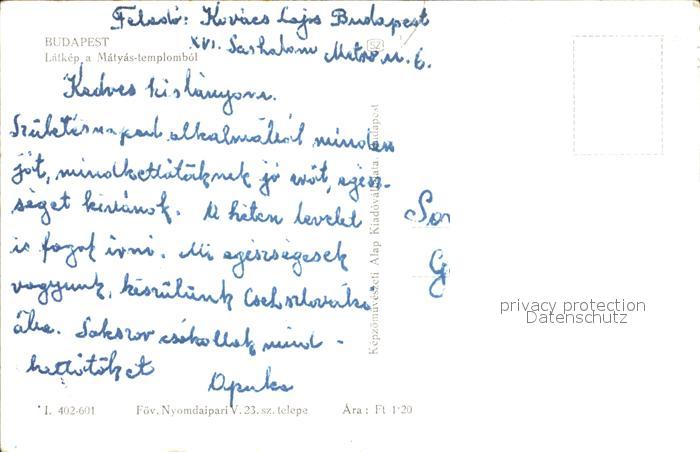 Feladó: Kovács Lajos Budapest
XVI. Sashalom Metró u. 6.
BUDAPEST
Látkép a Mátyás-templomból
Kedves kislányom.
Születésnapod alkalmából minden
jót, mindkettőtöknek jó erőt, egész-
séget kívánok. A héten levelet
is fogok írni. Mi egészségesek
vagyunk, készülünk Csehszlovákia
ába. Sokszor csókollak mind -
kettőtöket
Apuka
SZ
Képzőművészeti Alap Kiadóvállalata, Budapest
privacy protection
Datenschutz
I. 402-601
Főv. Nyomdaipari V. 23. sz. telepe
Ára: Ft 1·20